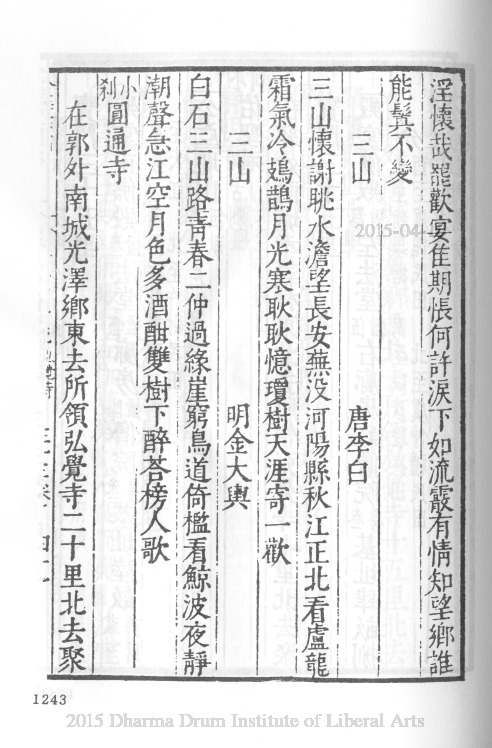 淫懷哉罷歡宴隹期悵何許淚下如流霰有情知望鄉誰
能鬒不變
三山
唐李白
三山懷謝眺水澹望長安蕪没河陽縣秋江正北看盧龍
霜氣冷鳷鵲月光寒耿耿憶瓊樹天涯寄一歡
三山
明金大輿
白石三山路靑春二仲過緣崖窮鳥道倚檻看鯨波夜靜
潮聲急江空月色多酒酣雙樹下醉荅榜人歌
小刹
圓通寺
在郭外南城光澤鄉東去所領弘覺寺二十里北去聚
1243
2015-04
2015 Dharma Drum Institute of Liberal Arts